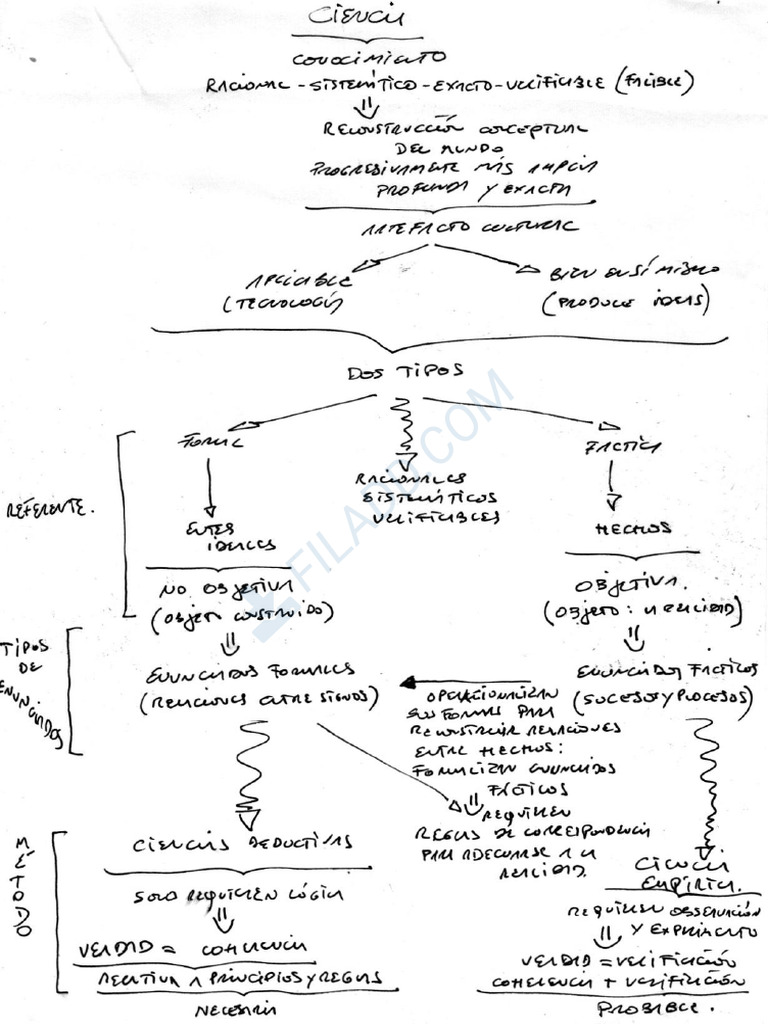 CIENCIA
CONOCIMIENTO
RACIONAL - SISTEMÁTICO - EXACTO - VERIFICABLE (FALIBLE)
RECONSTRUCCIÓN CONCEPTUAL
DEL MUNDO
PROGRESIVAMENTE MÁS AMPLIA
PROFUNDA Y EXACTA
ARTEFACTO CULTURAL
APLICABLE
(TECNOLOGÍA)
BIEN EN SÍ MISMO
(PRODUCE IDEAS)
DOS TIPOS
FORMAL
RACIONALES
SISTEMÁTICOS
VERIFICABLES
FACTICA
REFERENTE.
ENTES
IDEALES
HECHOS
NO OBJETIVA
(OBJETO CONSTRUIDO)
OBJETIVA.
(OBJETO: LA REALIDAD)
TIPOS
DE
ENUNCIADOS
ENUNCIADOS FORMALES
(RELACIONES ENTRE SIGNOS)
ENUNCIADOS FÁCTICOS
(SUCESOS Y PROCESOS)
OPERACIONALIZAN
SUS FORMAS PARA
RECONSTRUIR RELACIONES
ENTRE HECHOS:
FORMALIZAN ENUNCIADOS
FÁCTICOS
REQUIEREN
REGLAS DE CORRESPONDENCIA
PARA ADECUARSE A LA
REALIDAD.
MÉTODO
CIENCIAS DEDUCTIVAS
SOLO REQUIEREN LÓGICA
VERDAD = COHERENCIA
RELATIVA A PRINCIPIOS Y REGLAS
NECESARIA
CIENCIA
EMPÍRICA.
REQUIEREN OBSERVACIÓN
Y EXPERIMENTO
VERDAD = VERIFICACIÓN
COHERENCIA + VERIFICACIÓN
PROBABLE.
FILADD.COM